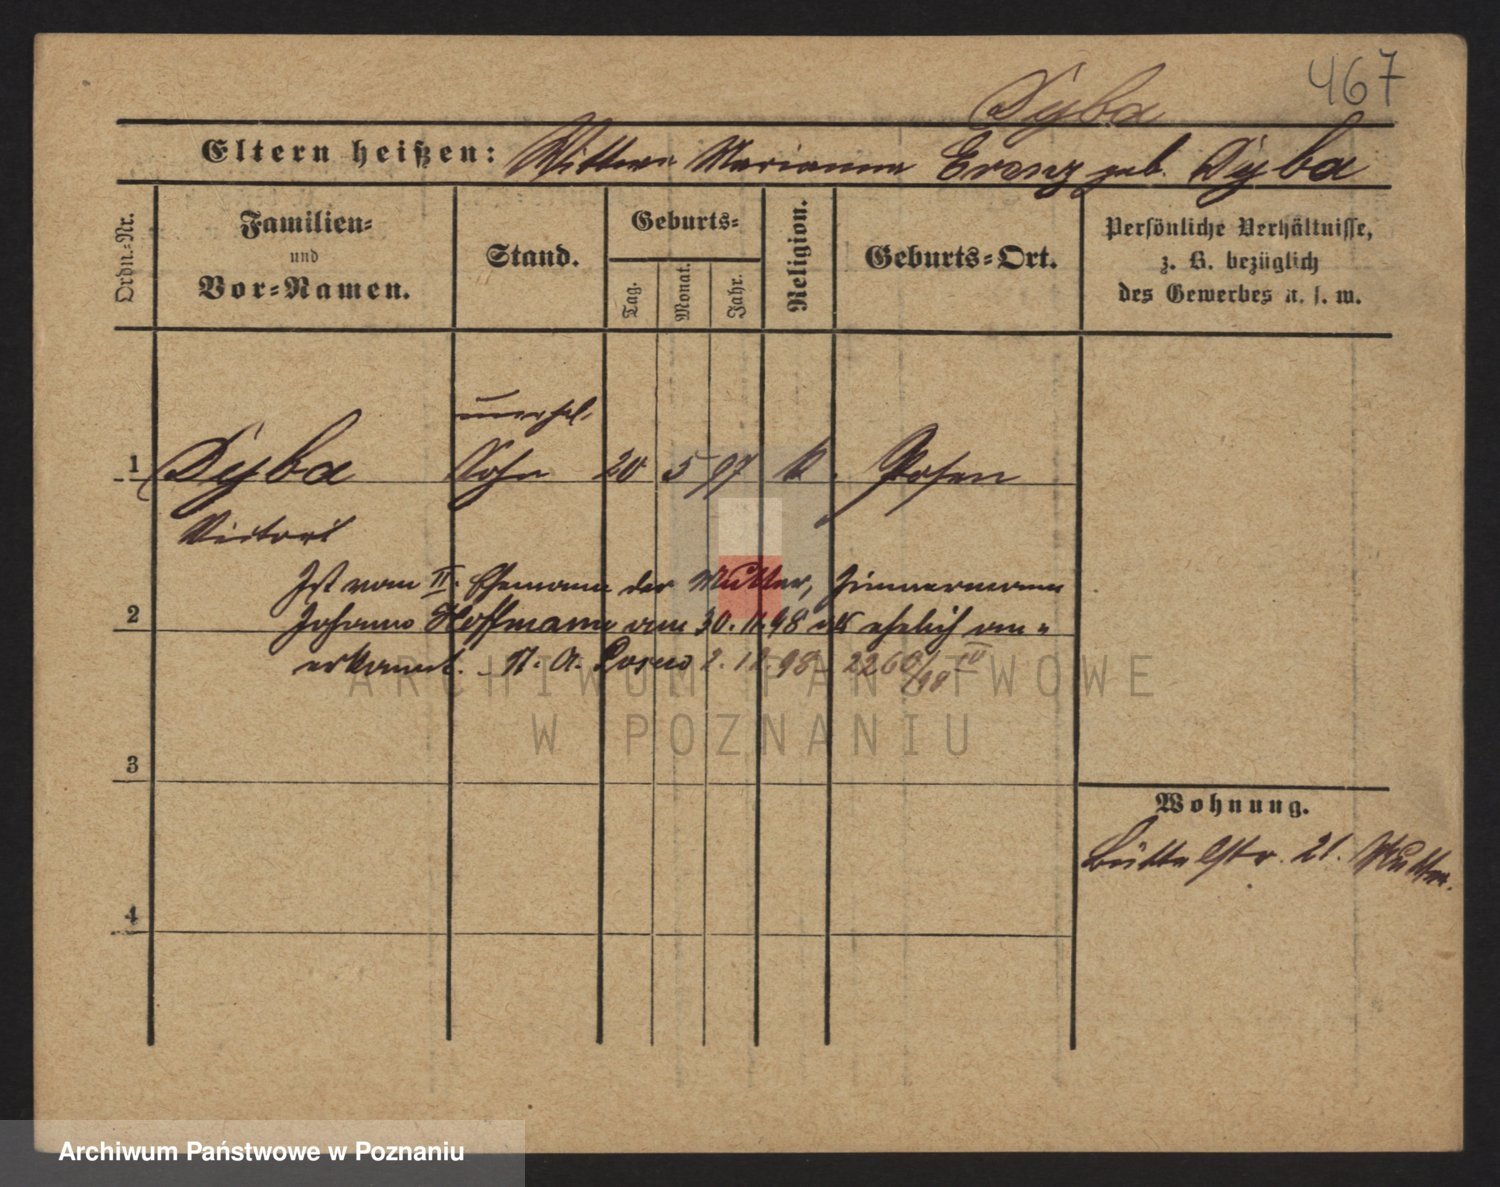 467
Dyba
Eltern heißen: Wittwe Marianne geb. Dyba
Ordn.-Nr.
Familien-
und
Vor-Namen.
Stand.
Geburts-
Tag.
Monat.
Jahr.
Religion.
Geburts-Ort.
Persönliche Verhältnisse,
z. B. bezüglich
des Gewerbes u. s. w.
unehel.
1 Dyba Sohn 20 5 97 k. Posen
Victor
Ist vom II. Ehemann der Mutter, Zimmermann
2
Johann Hoffmann am 30. 11. 98 als ehelich an-
erkannt. St. A. Posen 2. 12. 98 2260/98 IV
ARCHIWUM PAŃSTWOWE
W POZNANIU
3
Wohnung.
Büttelstr. 21. Mutter.
4
Archiwum Państwowe w Poznaniu